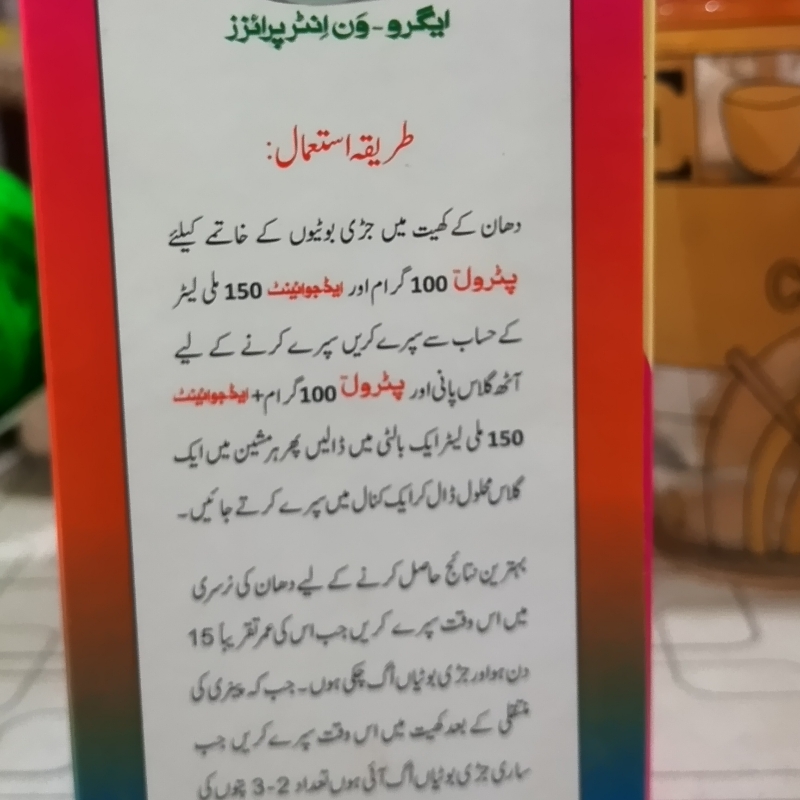 ایگرو-وَن اِنٹرپرائزز
طریقہ استعمال:
دھان کے کھیت میں جڑی بوٹیوں کے خاتمے کیلئے
پٹرول 100 گرام اور ایڈجوائینٹ 150 ملی لیٹر
کے حساب سے سپرے کریں سپرے کرنے کے لیے
آٹھ گلاس پانی اور پٹرول 100 گرام + ایڈجوائینٹ
150 ملی لیٹر ایک بالٹی میں ڈالیں پھر ہر مشین میں ایک
گلاس محلول ڈال کر ایک کنال میں سپرے کرتے جائیں۔
بہترین نتائج حاصل کرنے کے لیے دھان کی نرسری
میں اس وقت سپرے کریں جب اس کی عمر تقریباً 15
دن ہو اور جڑی بوٹیاں اُگ چکی ہوں۔ جب کہ پنیری کی
منتقلی کے بعد کھیت میں اس وقت سپرے کریں جب
ساری جڑی بوٹیاں اُگ آئی ہوں تعداد 2-3 پتوں کی